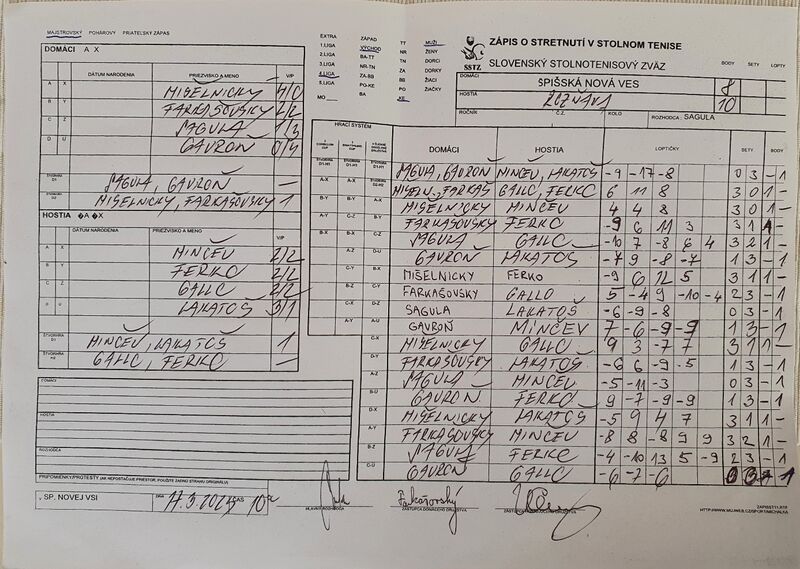 MAJSTROVSKÝ POHÁROVÝ PRIATEĽSKÝ ZÁPAS
DOMÁCI A X
DÁTUM NARODENIA PRIEZVISKO A MENO V/P
A X MIŠELNICKÝ 4/0
B Y FARKAŠOVSKÝ 2/2
C Z SAGULA 1/3
D U GAVROŇ 0/4
ŠTVORHRA D1 SAGULA, GAVROŇ –
ŠTVORHRA D2 MIŠELNICKÝ, FARKAŠOVSKÝ 1
HOSTIA �A �X
DÁTUM NARODENIA PRIEZVISKO A MENO V/P
A X MINČEV 2/2
B Y FERKO 2/2
C Z GALLO 2/2
D U LAKATOŠ 3/1
ŠTVORHRA MINČEV, LAKATOŠ 1
ŠTVORHRA GALLO, FERKO –
DOMÁCI
HOSTIA
ROZHODCA
PRIPOMIENKY/PROTESTY (AK NEPOSTAČUJE PRIESTOR, POUŽITE ZADNÚ STRANU ORIGINÁLU)
V SP. NOVEJ VSI DŇA 17.3.2023 ČAS 10
EXTRA ZÁPAD TT MUŽI
1.LIGA VÝCHOD NR ŽENY
2.LIGA BA-TT TN DORCI
3.LIGA NR-TN ZA DORKY
4.LIGA ZA-BB BB ŽIACI
5.LIGA PO-KE PO ŽIAČKY
MO BA KE
SSTZ
ZÁPIS O STRETNUTÍ V STOLNOM TENISE
SLOVENSKÝ STOLNOTENISOVÝ ZVÄZ
BODY SETY LOPTY
DOMÁCI SPIŠSKÁ NOVÁ VES 8
HOSTIA ROŽŇAVA 10
ROČNÍK Č.Z. KOLO ROZHODCA: SAGULA
HRACÍ SYSTÉM
DOMÁCI HOSTIA LOPTIČKY SETY BODY
SAGULA, GAVROŇ MINČEV, LAKATOŠ -9 -17 -8 0 3 - 1
A-X A-X MIŠELN., FARKAŠ GALLO, FERKO 6 11 8 3 0 1 -
B-Y B-Y A-X MIŠELNICKÝ MINČEV 4 4 8 3 0 1 -
A-Y C-Z B-Y FARKAŠOVSKÝ FERKO -9 6 11 3 3 1 1 -
B-X B-X C-Z SAGULA GALLO -10 7 -8 6 4 3 2 1 -
A-Z D-U GAVROŇ LAKATOŠ -7 9 -8 -7 1 3 - 1
C-Y B-X MIŠELNICKÝ FERKO -9 6 12 5 3 1 1 -
B-Z C-Y FARKAŠOVSKÝ GALLO 5 -4 9 -10 -4 2 3 - 1
C-X D-Z SAGULA LAKATOŠ -6 -9 -8 0 3 - 1
A-Y A-U GAVROŇ MINČEV 7 -6 -9 -9 1 3 - 1
C-X MIŠELNICKÝ GALLO 9 3 -7 7 3 1 1 -
D-Y FARKAŠOVSKÝ LAKATOŠ -6 6 -9 -5 1 3 - 1
A-Z SAGULA MINČEV -5 -11 -3 0 3 - 1
B-U GAVROŇ FERKO 9 -7 -9 -9 1 3 - 1
D-X MIŠELNICKÝ LAKATOŠ -5 9 4 7 3 1 1 -
A-Y FARKAŠOVSKÝ MINČEV -8 8 -8 9 9 3 2 1 -
B-Z SAGULA FERKO -4 -10 13 5 -9 2 3 - 1
C-U GAVROŇ GALLO -6 -7 -6 0 3 - 1
Farkašovský
HLAVNÝ ROZHODCA ZÁSTUPCA DOMÁCEHO DRUŽSTVA